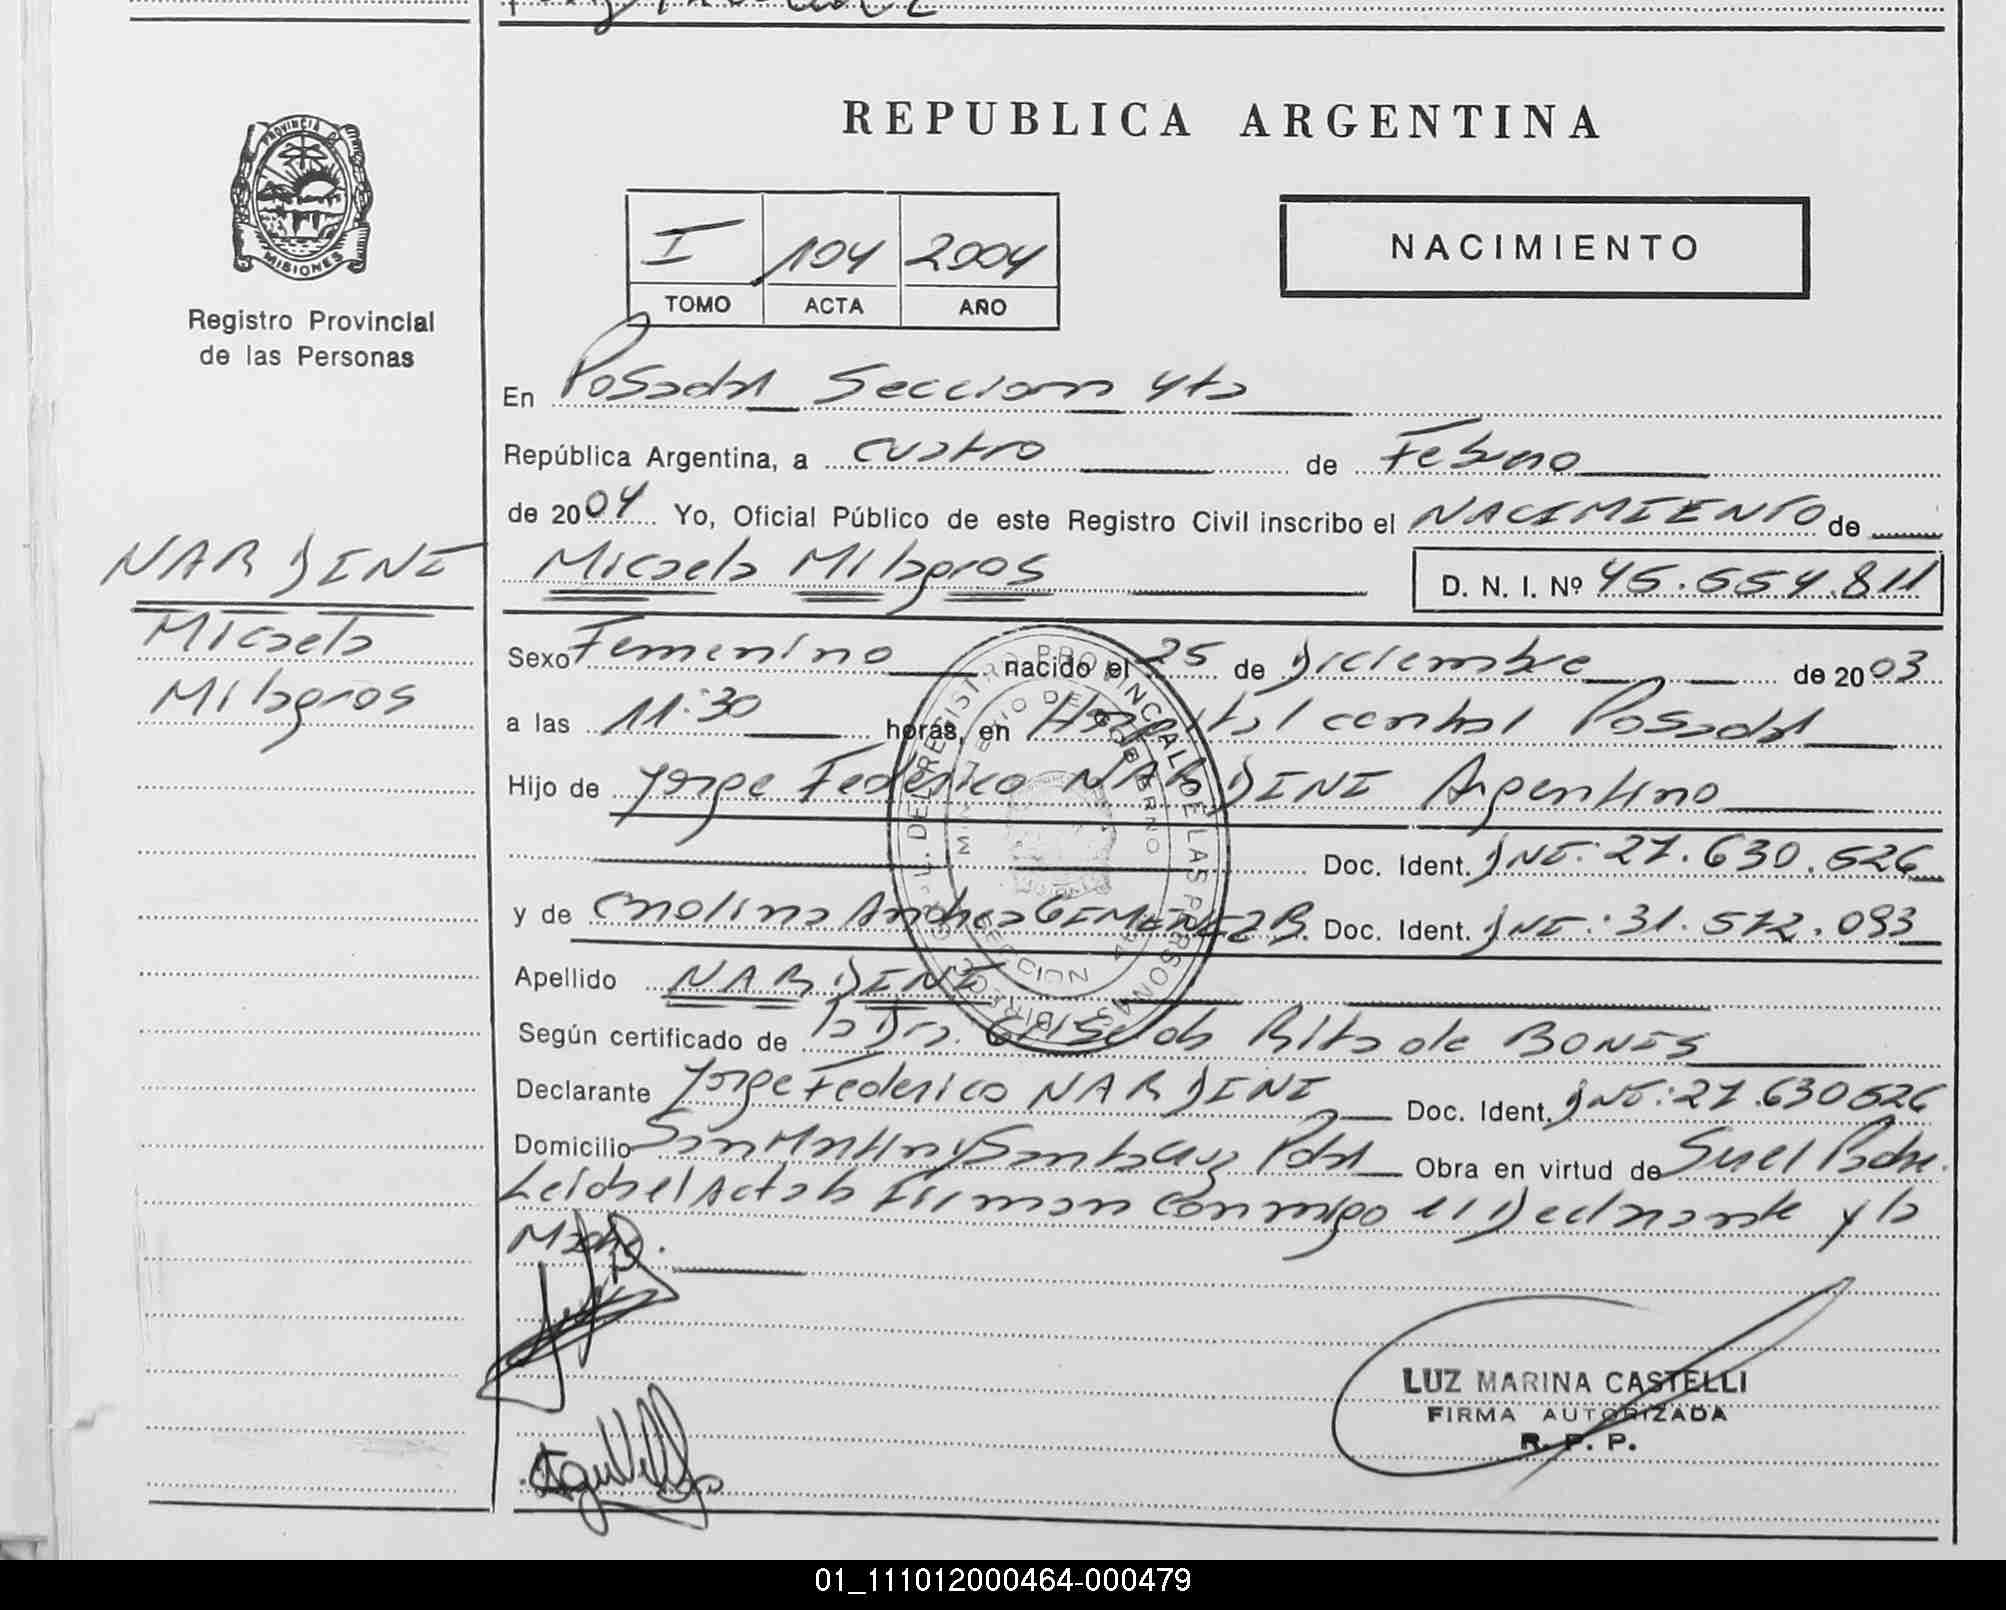 REPUBLICA ARGENTINA
PROVINCIA DE
MISIONES
Registro Provincial
de las Personas
I 104 2004
TOMO ACTA AÑO
NACIMIENTO
En Posadas Seccion 4ta
República Argentina, a cuatro de Febrero
de 2004 Yo, Oficial Público de este Registro Civil inscribo el NACIMIENTO de
NARDINI
Micaela
Milagros
Micaela Milagros D. N. I. Nº 45.554.811
Sexo Femenino nacido el 25 de Diciembre de 2003
a las 11:30 horas, en Hospital central Posadas
Hijo de Jorge Federico NARDINI Argentino
Doc. Ident. DNI: 27.630.526
y de Carolina Andrea GIMENEZ B. Doc. Ident. DNI: 31.572.093
Apellido NARDINI
Según certificado de la Dra. Griselda Rita de BONIS
Declarante Jorge Federico NARDINI Doc. Ident. DNI: 27.630526
Domicilio San Martin y Santa Cruz Pdas Obra en virtud de Ser el Padre.
Leida el Acta la Firman conmigo el Declarante y la
Madre.
LUZ MARINA CASTELLI
FIRMA AUTORIZADA
R. P. P.
01_111012000464-000479